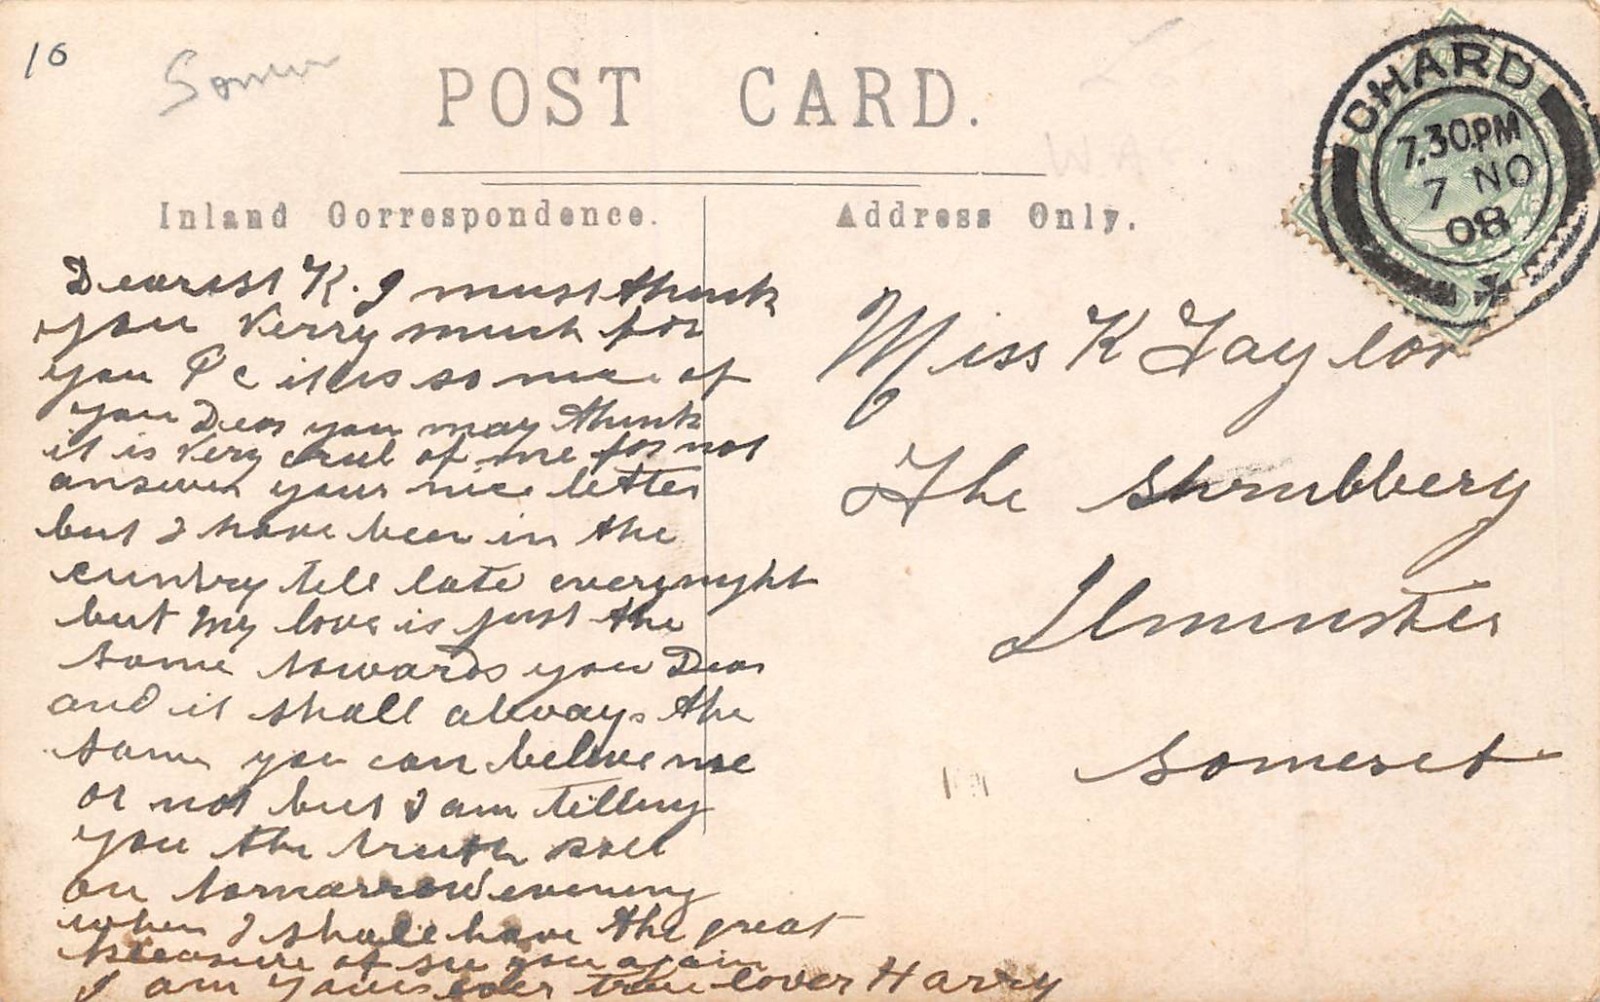 16
Somer
POST CARD.
Inland Correspondence.
Address Only.
CHARD
7.30.PM
7 NO
08
Dearest K. I must thank
you Verry much for
you P c it is so nice of
you Dear you may think
it is Very cruel of me for not
answer your nice letter
but I have been in the
cuntry till late every night
but my love is just the
same towards you Dear
and it shall always the
same you can beleive me
or not but I am telling
you the truth
on tomarrow evening
when I shall have the great
pleasure of see you again
I am yours ever true lover Harry
Miss K Taylor
The Shrubbery
Ilminster
Somerset